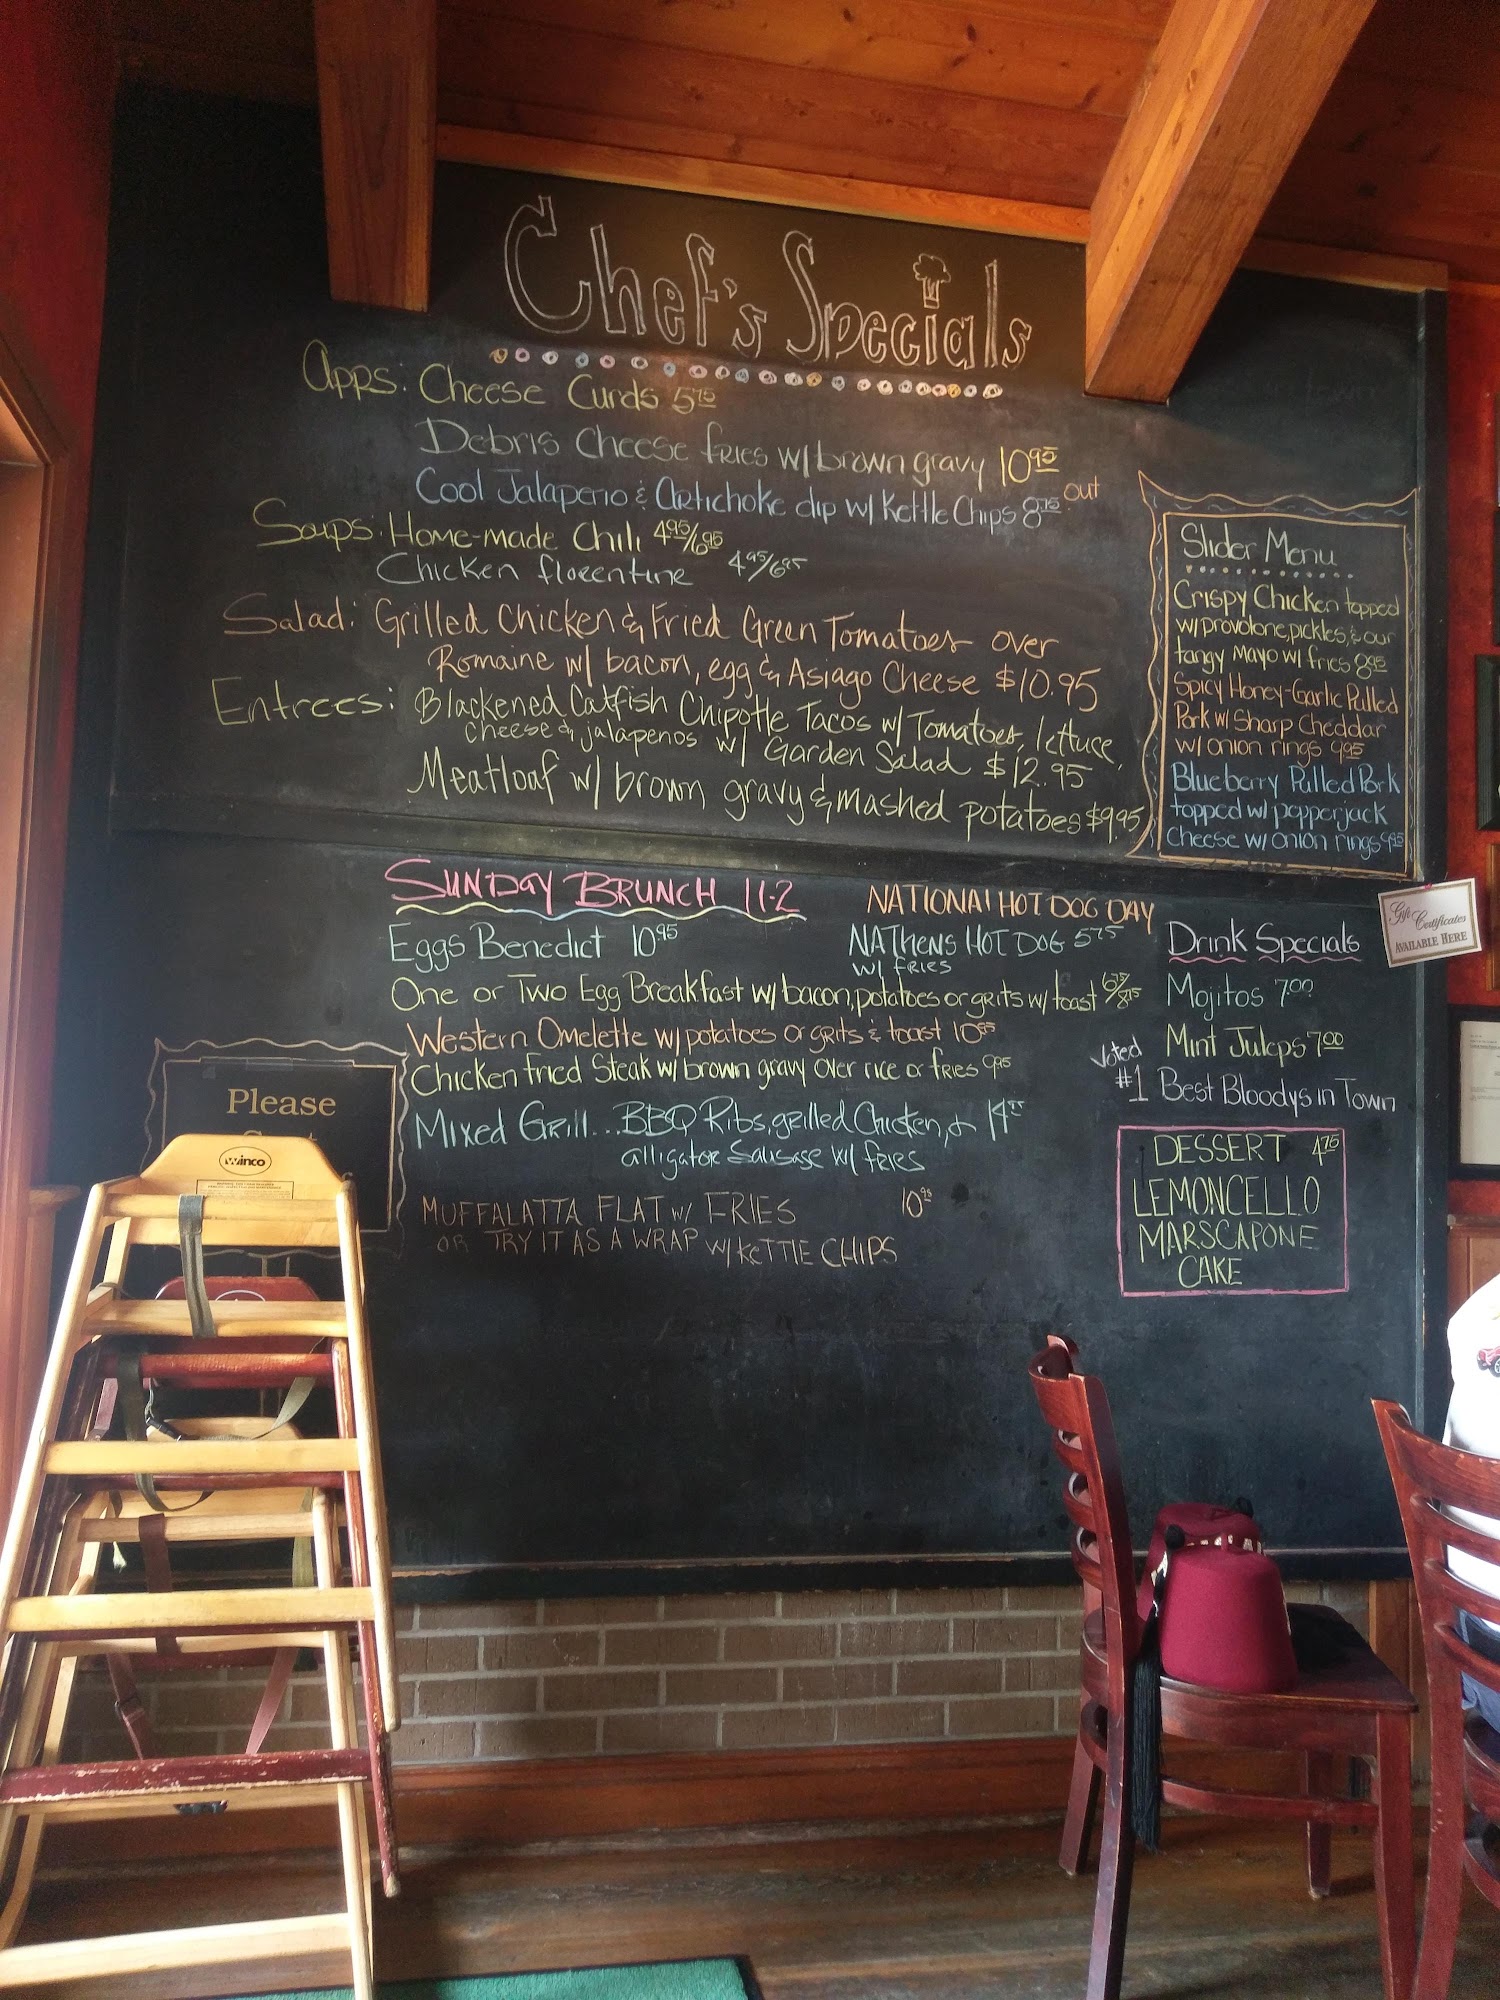 Chef's Specials
Apps: Cheese Curds 5.75
Debris Cheese fries w/ brown gravy 10.95
Cool Jalapeno & Artichoke dip w/ Kettle Chips 8.75 out
Soups: Home-made Chili 4.95/6.95
Chicken florentine 4.95/6.95
Salad: Grilled Chicken & Fried Green Tomatoes over
Romaine w/ bacon, egg & Asiago Cheese $10.95
Entrees: Blackened Catfish Chipotle Tacos w/ Tomatoes, lettuce,
cheese & jalapenos w/ Garden Salad $12.95
Meatloaf w/ brown gravy & mashed potatoes $9.95
Slider Menu
Crispy Chicken topped
w/ provolone, pickles, & our
tangy mayo w/ fries 8.95
Spicy Honey-Garlic Pulled
Pork w/ Sharp Cheddar
w/ onion rings 9.95
Blueberry Pulled Pork
topped w/ pepperjack
cheese w/ onion rings 9.95
SUNDAY BRUNCH 11-2
Eggs Benedict 10.95
One or Two Egg Breakfast w/ bacon, potatoes or grits w/ toast 6.75/8.75
Western Omelette w/ potatoes or grits & toast 10.95
Chicken fried Steak w/ brown gravy over rice or fries 9.95
Mixed Grill... BBQ Ribs, grilled Chicken, &
alligator Sausage w/ fries
MUFFALATTA FLAT w/ FRIES 10.95
OR TRY IT AS A WRAP w/ KETTLE CHIPS
NATIONAL HOT DOG DAY
NATHENS HOT DOG 5.75
w/ fries
Drink Specials
Mojitos 7.00
Mint Juleps 7.00
Voted
#1 Best Bloodys in Town
DESSERT 4.75
LEMONCELLO
MARSCAPONE
CAKE
Gift Certificates
AVAILABLE HERE
Please
winco